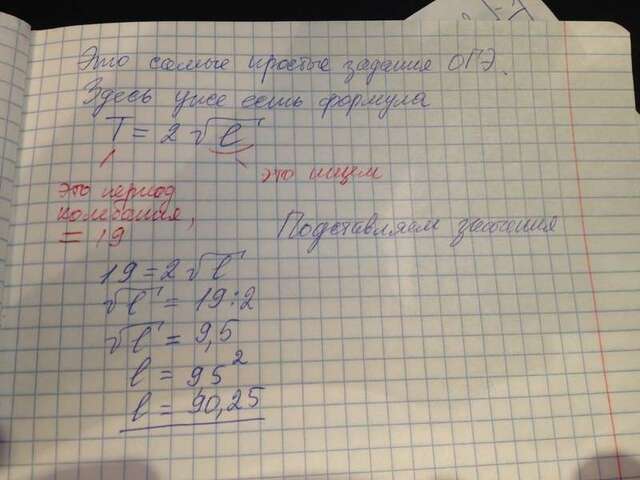 Это самые простые задания ОГЭ.
Здесь уже есть формула
T = 2 √l
это ищем
это период
колебания,
= 19
Подставляем значения
19 = 2 √l
√l = 19:2
√l = 9,5
l = 9,5²
l = 90,25